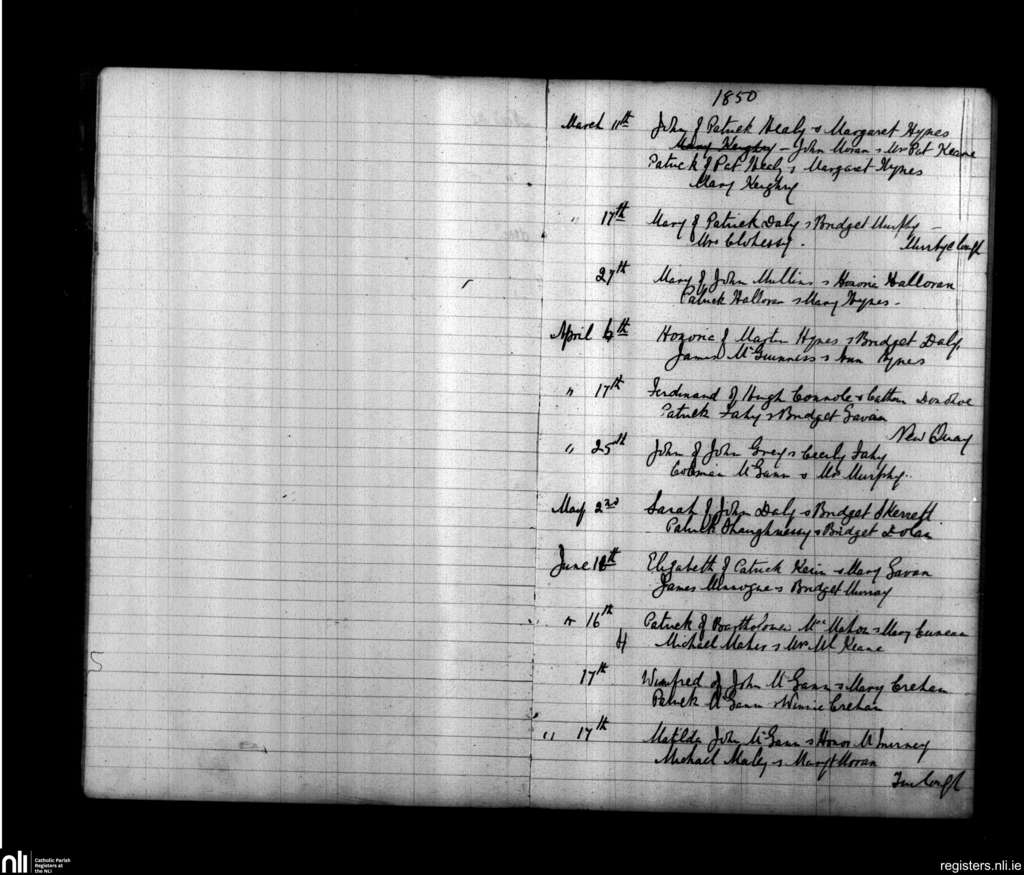 1850
March 11th John of Patrick Healy & Margaret Hynes
Mary Keighry – John Moran & Mrs Pat Keane
Patrick of Pat Healy & Margaret Hynes
Mary Keighry
" 17th Mary of Patrick Daly & Bridget Murphy –
Mrs Clohessy. Murtyclough
27th Mary of John Mullins & Honoria Halloran
Patrick Halloran & Mary Hynes.
April 6th Honoria of Martin Hynes & Bridget Daly
James McGuinness & Ann Hynes
" 17th Ferdinand of Hugh Connole & Donohoe
Patrick Fahy & Bridget Gavan
New Quay
" 25th John of John Grey & Cecily Fahy
Colman McGann & Mrs Murphy.
May 2nd Sarah of John Daly & Bridget Skerrett
Patrick Shaughnessy & Bridget Dolan
June Elizabeth of Patrick Kerin & Mary Gavan
James Minnogue & Bridget Murray
" 16th Patrick of Bartholomew McMahon & Mary Cuneen
Michael Maher & Mrs Keane
17th Winifred of John McGann & Mary Crehan
Patrick McGann & Winnie Crehan
" 17th Matilda John McGann & Honor
Michael Maley & Moran
nli
Catholic Parish
Registers at
the NLI
registers.nli.ie